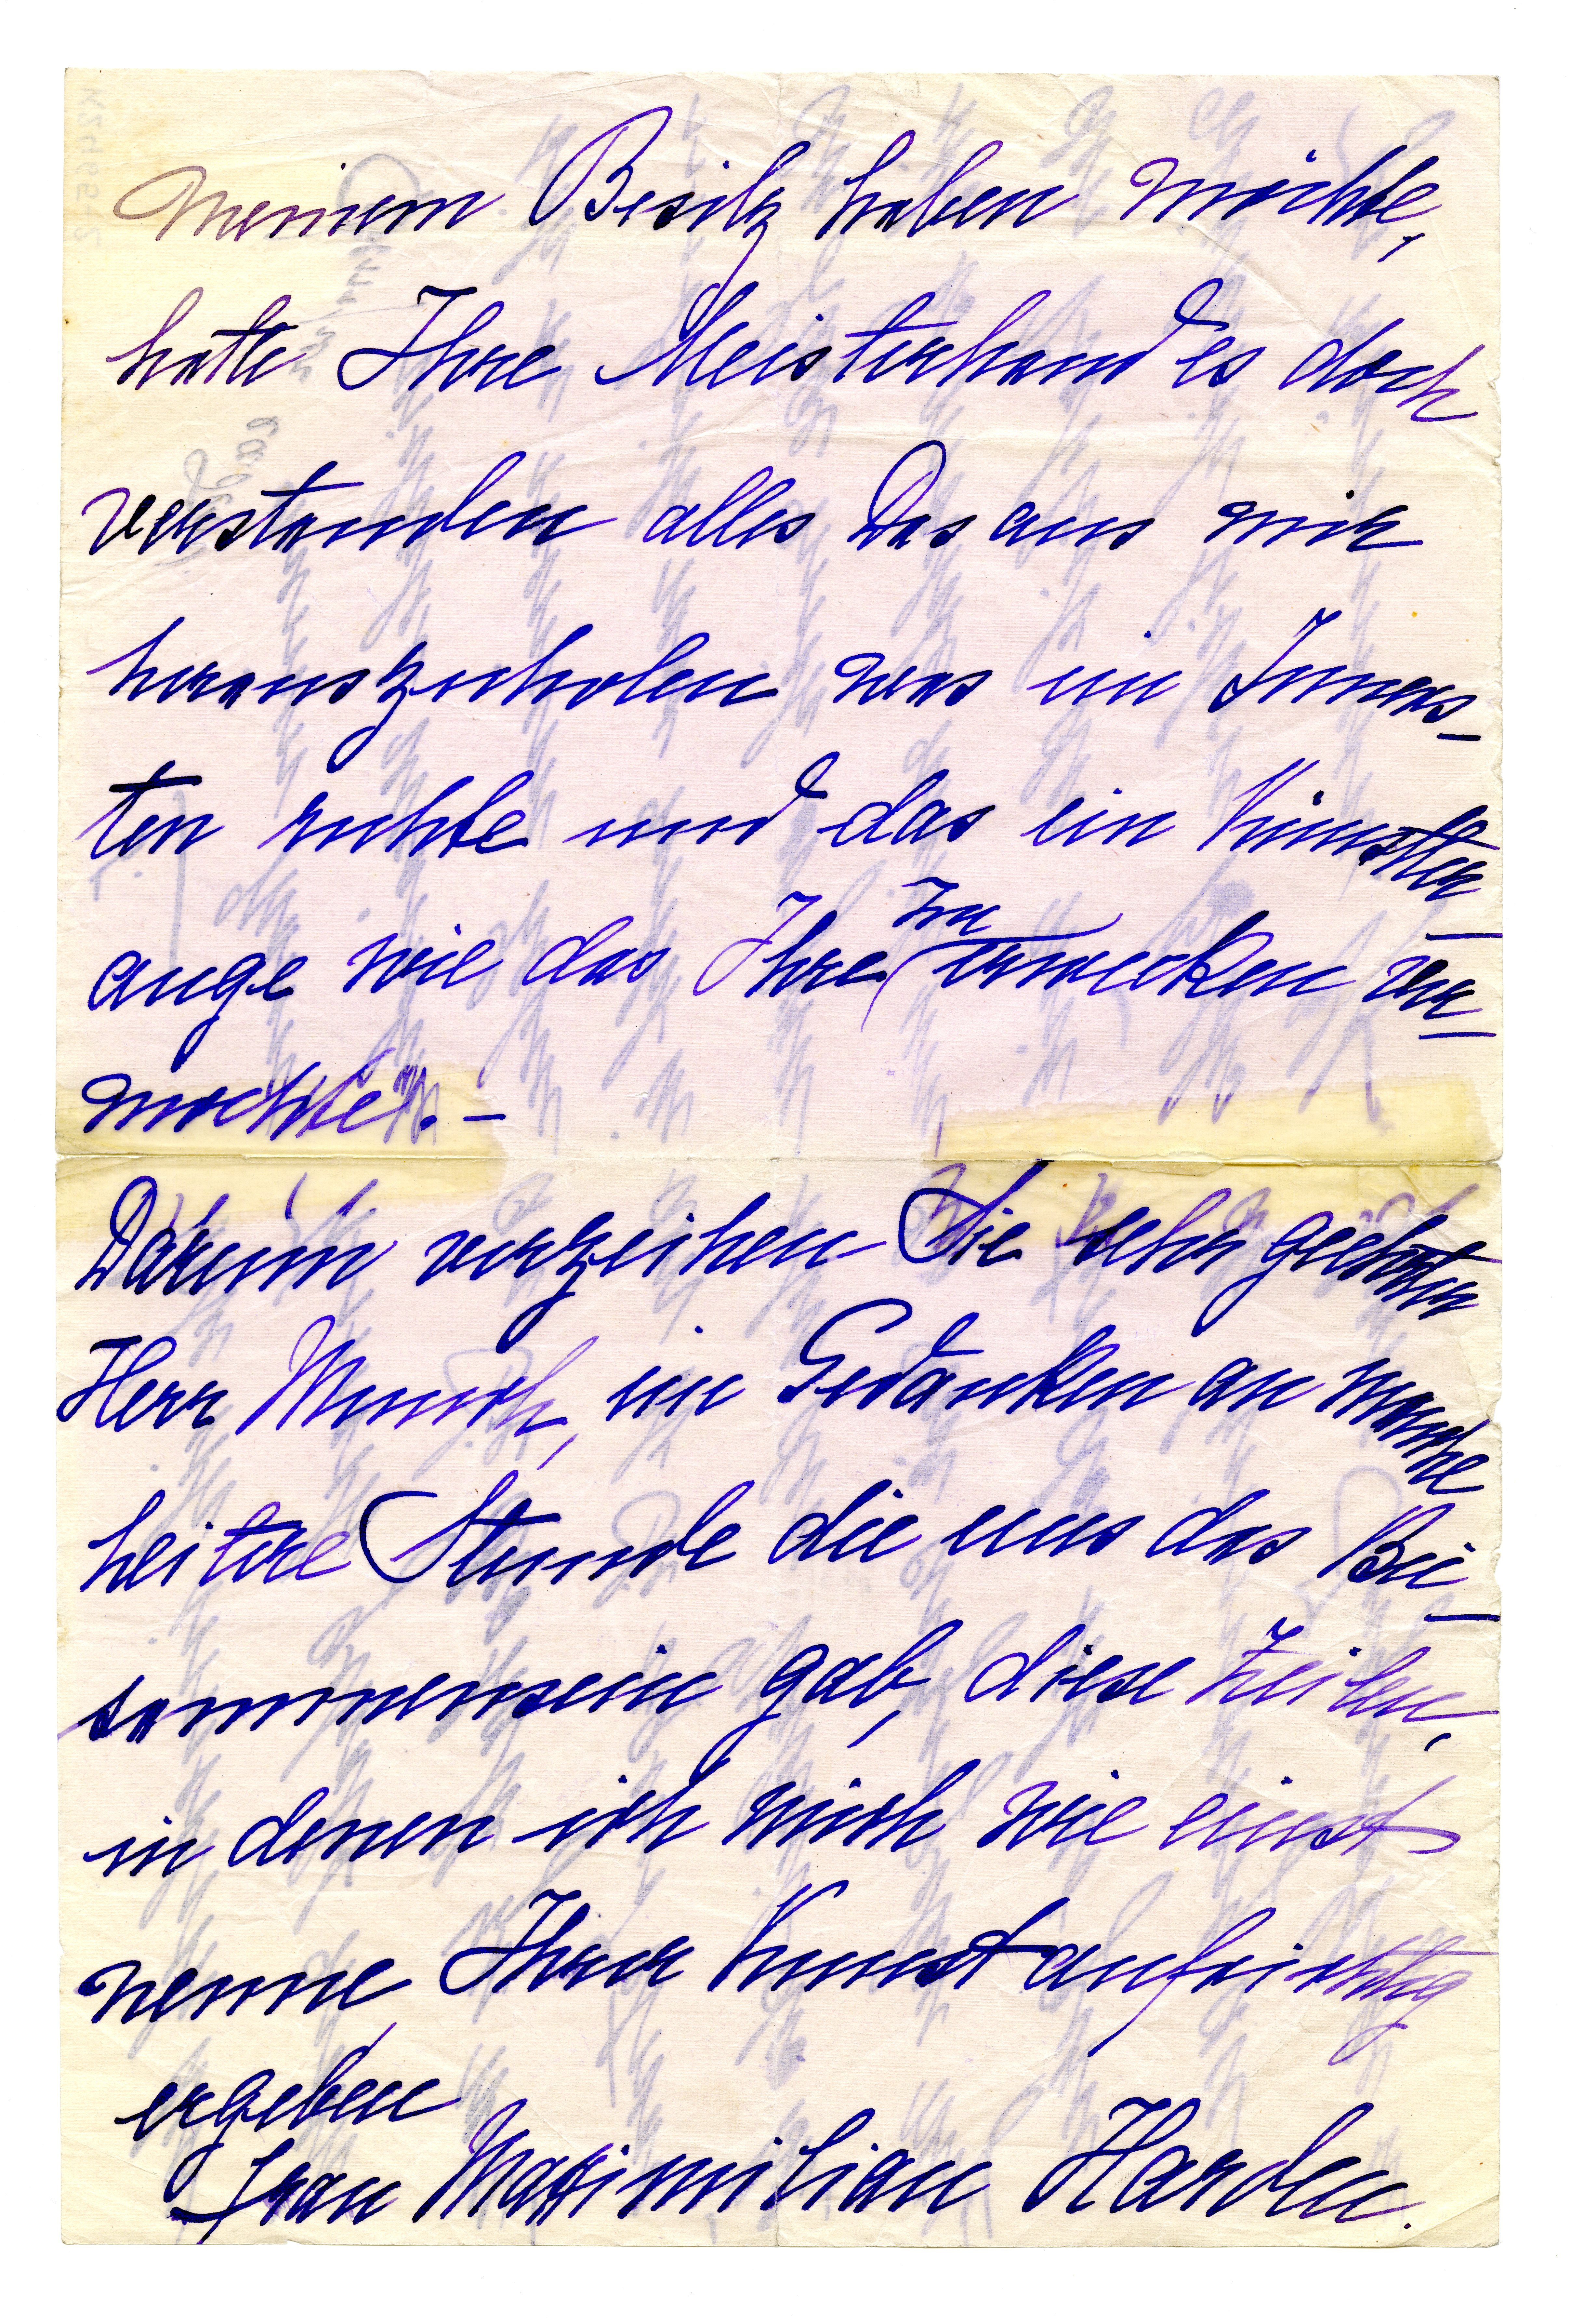 meinem Besitz haben möchte,
hatte Ihre Meisterhand es doch
verstanden alles Das aus mir
herauszuholen was im Inners-
ten ruhte und das ein Künstler-
auge wie das Ihre zu erwecken ver-
mochte. –
Darum verzeihen Sie sehr geehrter
Herr Munch, im Gedanken an manche
heitere Stunde die uns das Bei-
sammensein gab, diese Zeilen,
in denen ich mich wie einst
nenne Ihrer Kunst aufrichtig
ergeben
Frau Maximilian Harden.